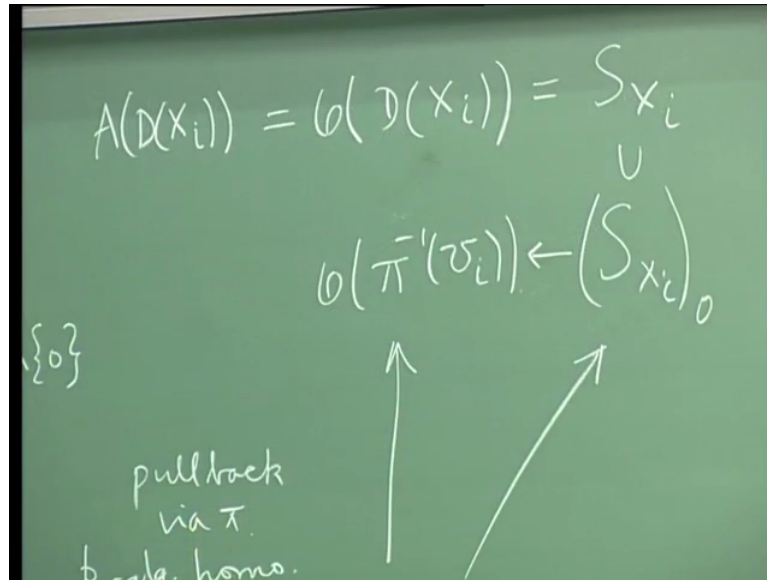 A(D(X_i)) = O(D(X_i)) = S_{X_i}
∪
O(π^{-1}(U_i)) ← (S_{X_i})_0
\{0}
pullback
via π.
homo.